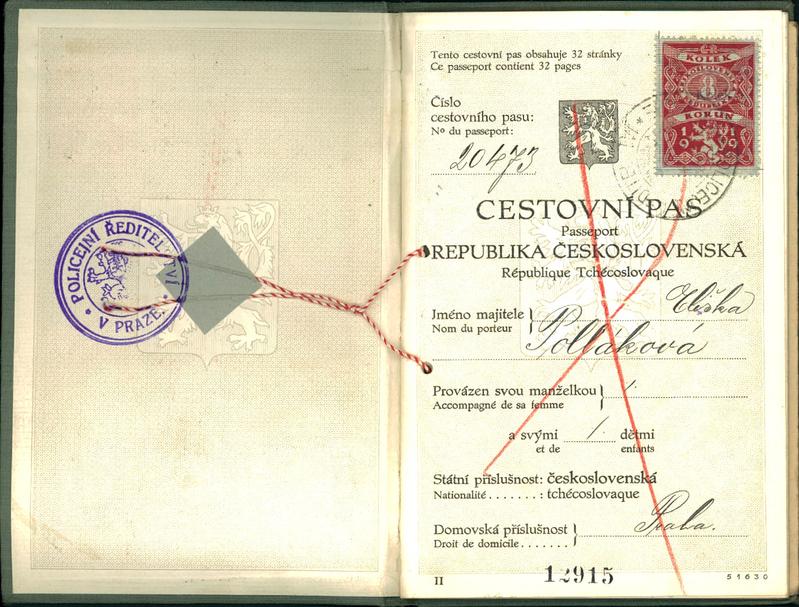 POLICEJNÍ ŘEDITELSTVÍ
V PRAZE.
Tento cestovní pas obsahuje 32 stránky
Ce passeport contient 32 pages
ČR
KOLEK
KORUN
1919
Číslo
cestovního pasu:
No du passeport:
20473
CESTOVNÍ PAS
Passeport
REPUBLIKA ČESKOSLOVENSKÁ
République Tchécoslovaque
Jméno majitele
Nom du porteur
Eliška
Polláková
Provázen svou manželkou
Accompagné de sa femme
a svými dětmi
et de enfants
Státní příslušnost: československá
Nationalité.......: tchécoslovaque
Domovská příslušnost
Droit de domicile.......
Praha.
II
12915
51630